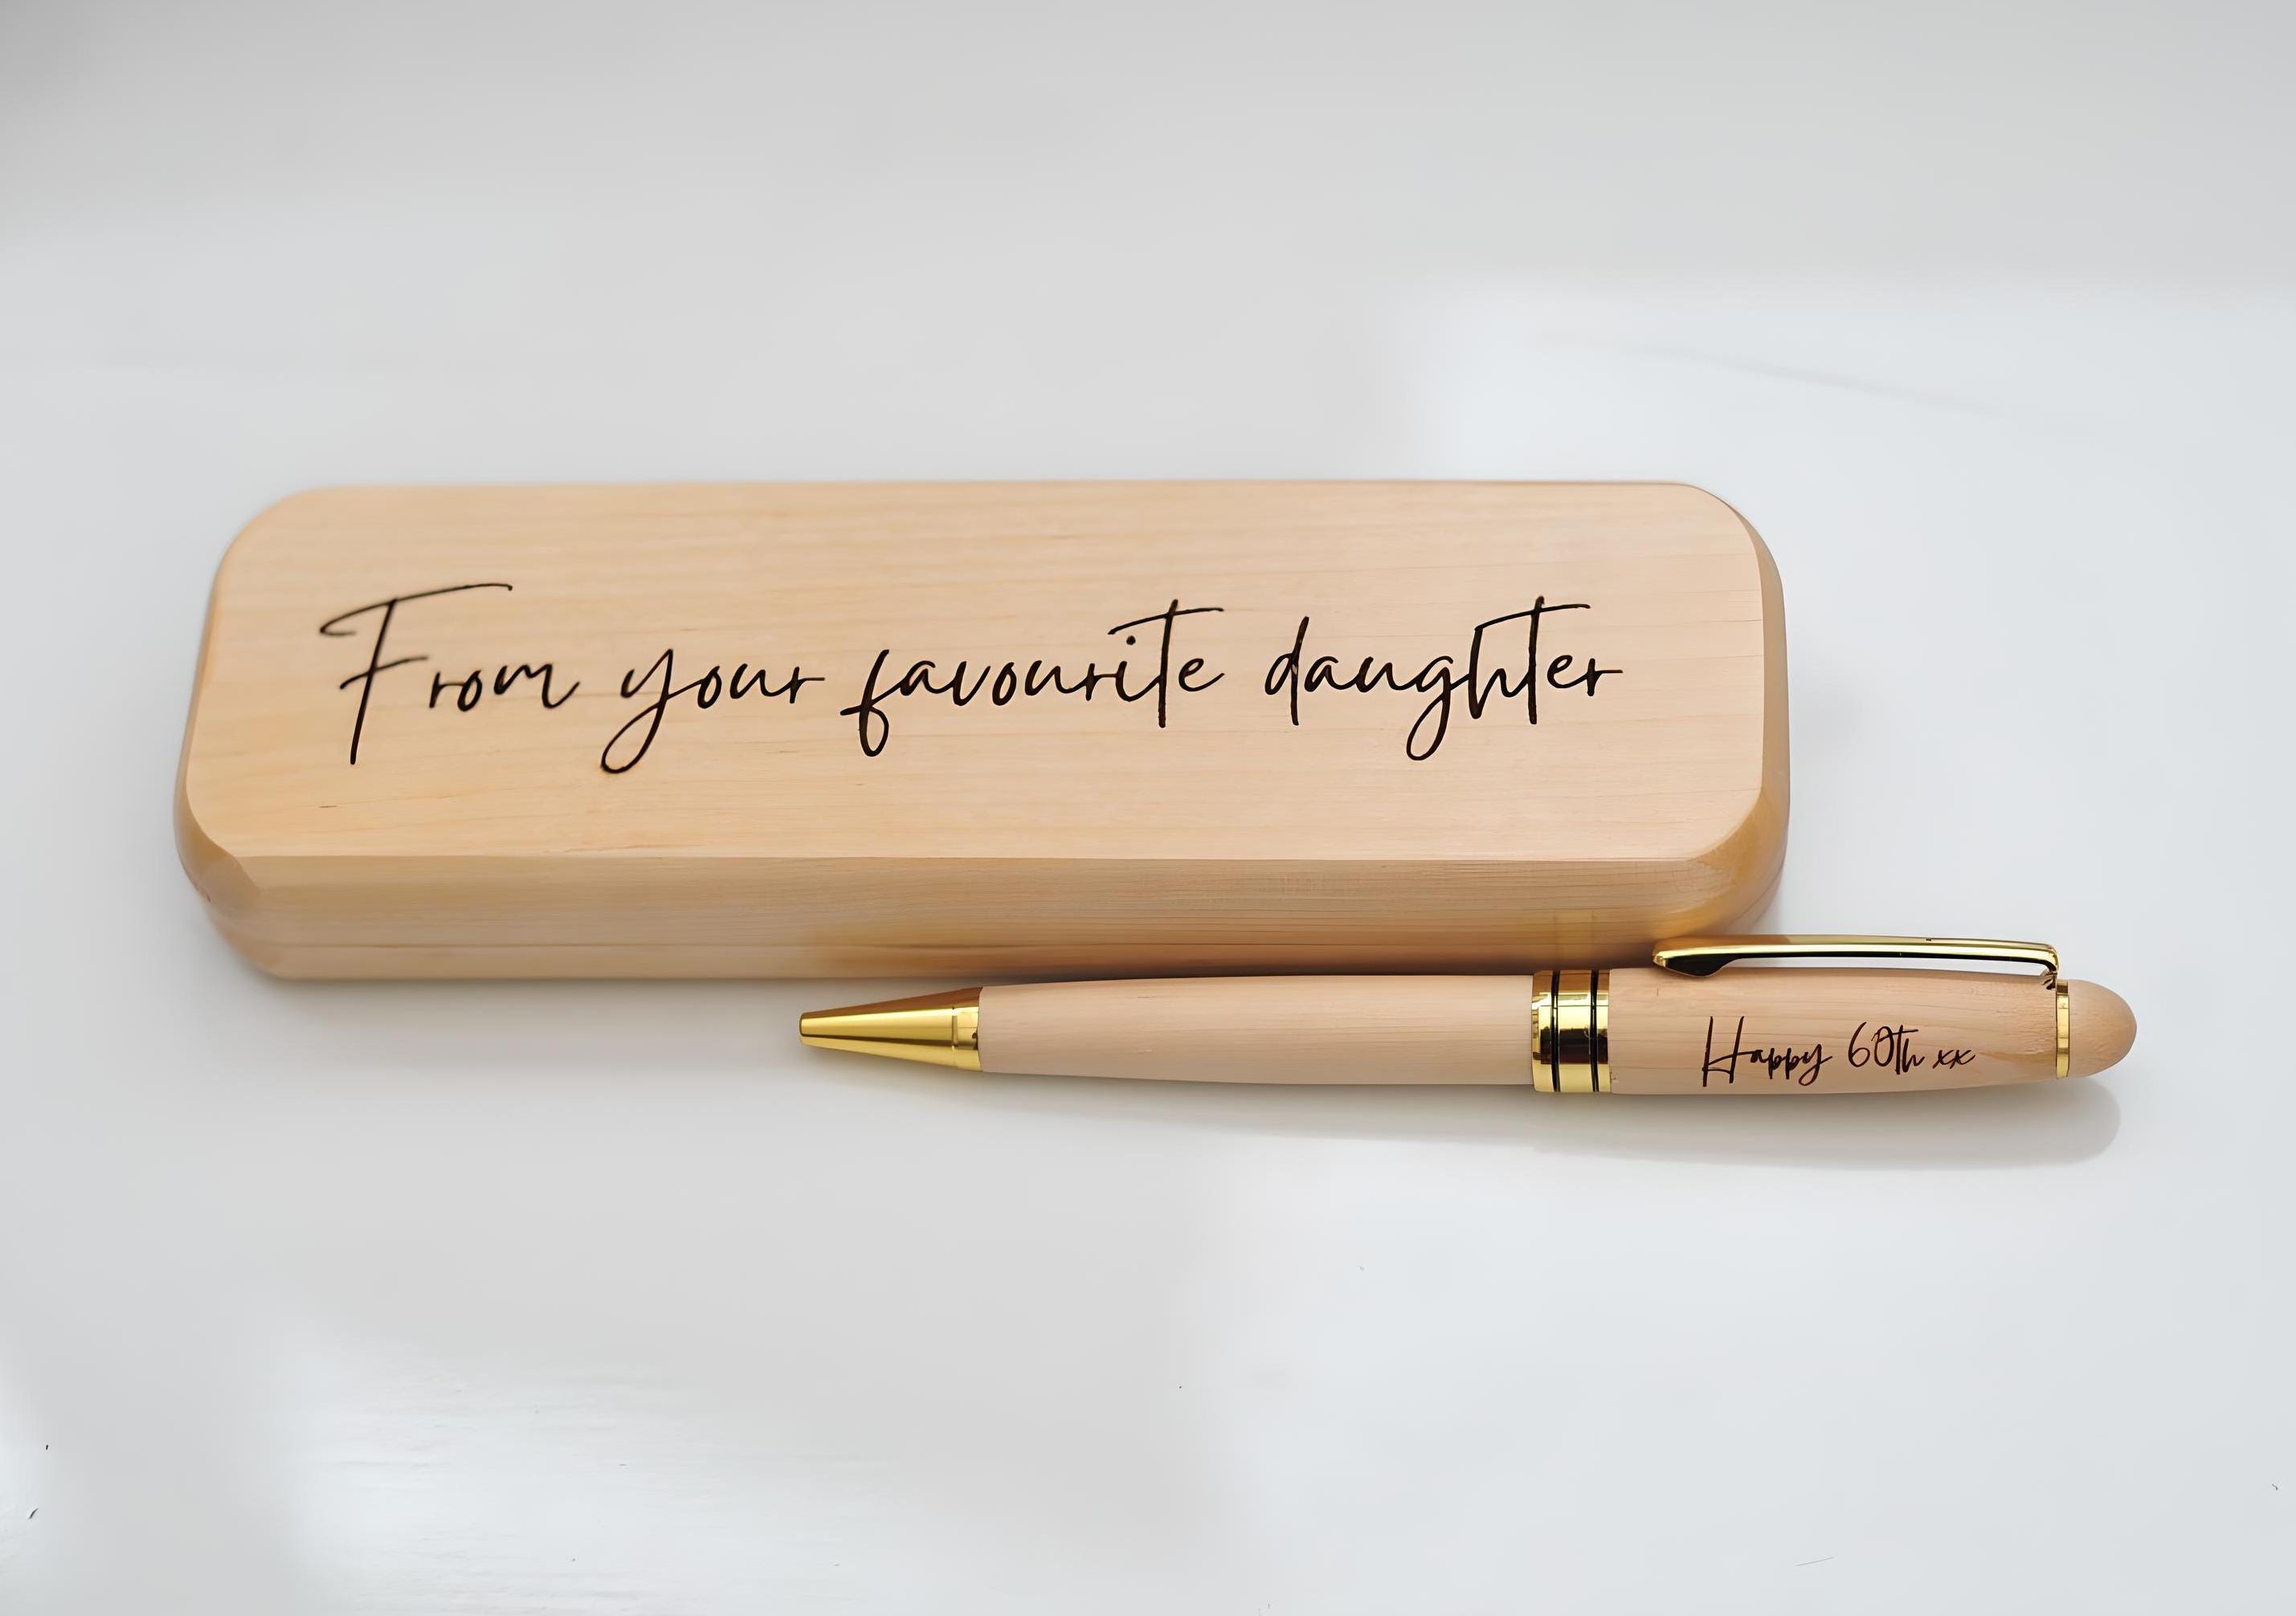 From your favourite daughter
Happy 60th xx